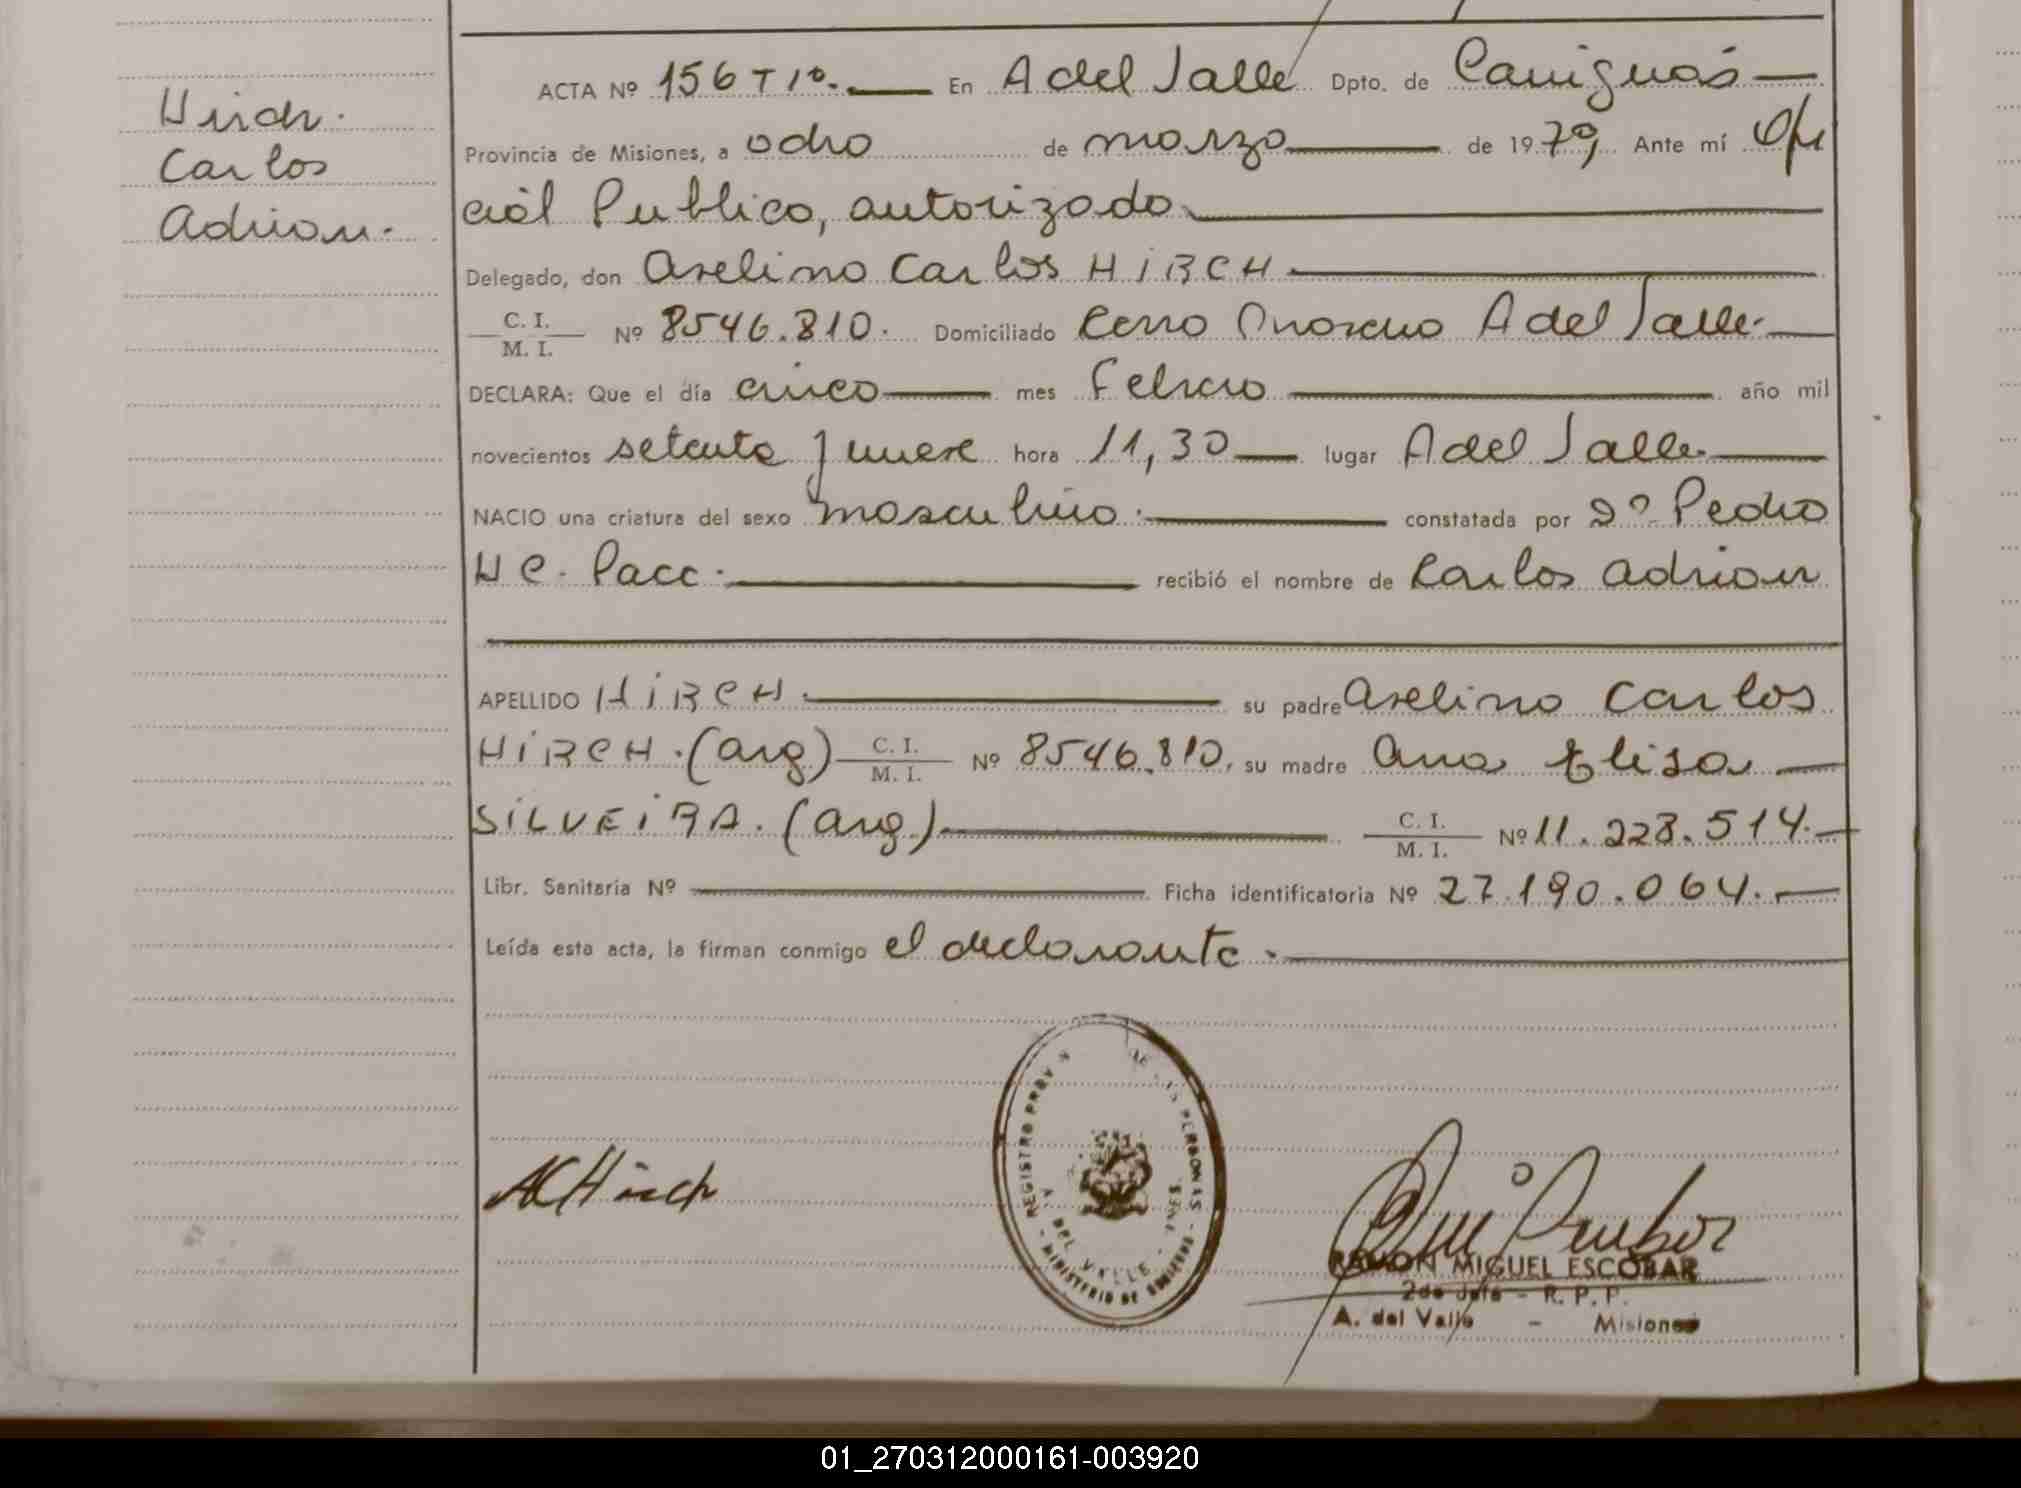 Hirch.
Carlos
Adrian.
ACTA Nº 156 T 1º. En A del Valle Dpto. de Cainguás
Provincia de Misiones, a ocho de marzo de 1979, Ante mí Ofi
cial Publico, autorizado
Delegado, don Avelino Carlos HIRCH
C. I.
M. I. Nº 8546.810. Domiciliado Cerro Moreno A del Valle.
DECLARA: Que el día cinco mes Febrero año mil
novecientos setenta y nueve hora 11,30 lugar A del Valle.
NACIO una criatura del sexo masculino. constatada por Dº Pedro
H C. Pacc. recibió el nombre de Carlos Adrian
APELLIDO HIRCH. su padre Avelino Carlos
HIRCH. (arg) C. I.
M. I. Nº 8546.810, su madre Ana Elisa
SILVEIRA. (arg) C. I.
M. I. Nº 11.228.514.
Libr. Sanitaria Nº Ficha identificatoria Nº 27.190.064.
Leída esta acta, la firman conmigo el declarante.
REGISTRO PROV DE LAS PERSONAS
A DEL VALLE - MNES.
- MINISTERIO DE GOBIERNO -
ACHirch
RAMON MIGUEL ESCOBAR
2do Jefe - R. P. P.
A. del Valle - Misiones
01_270312000161-003920